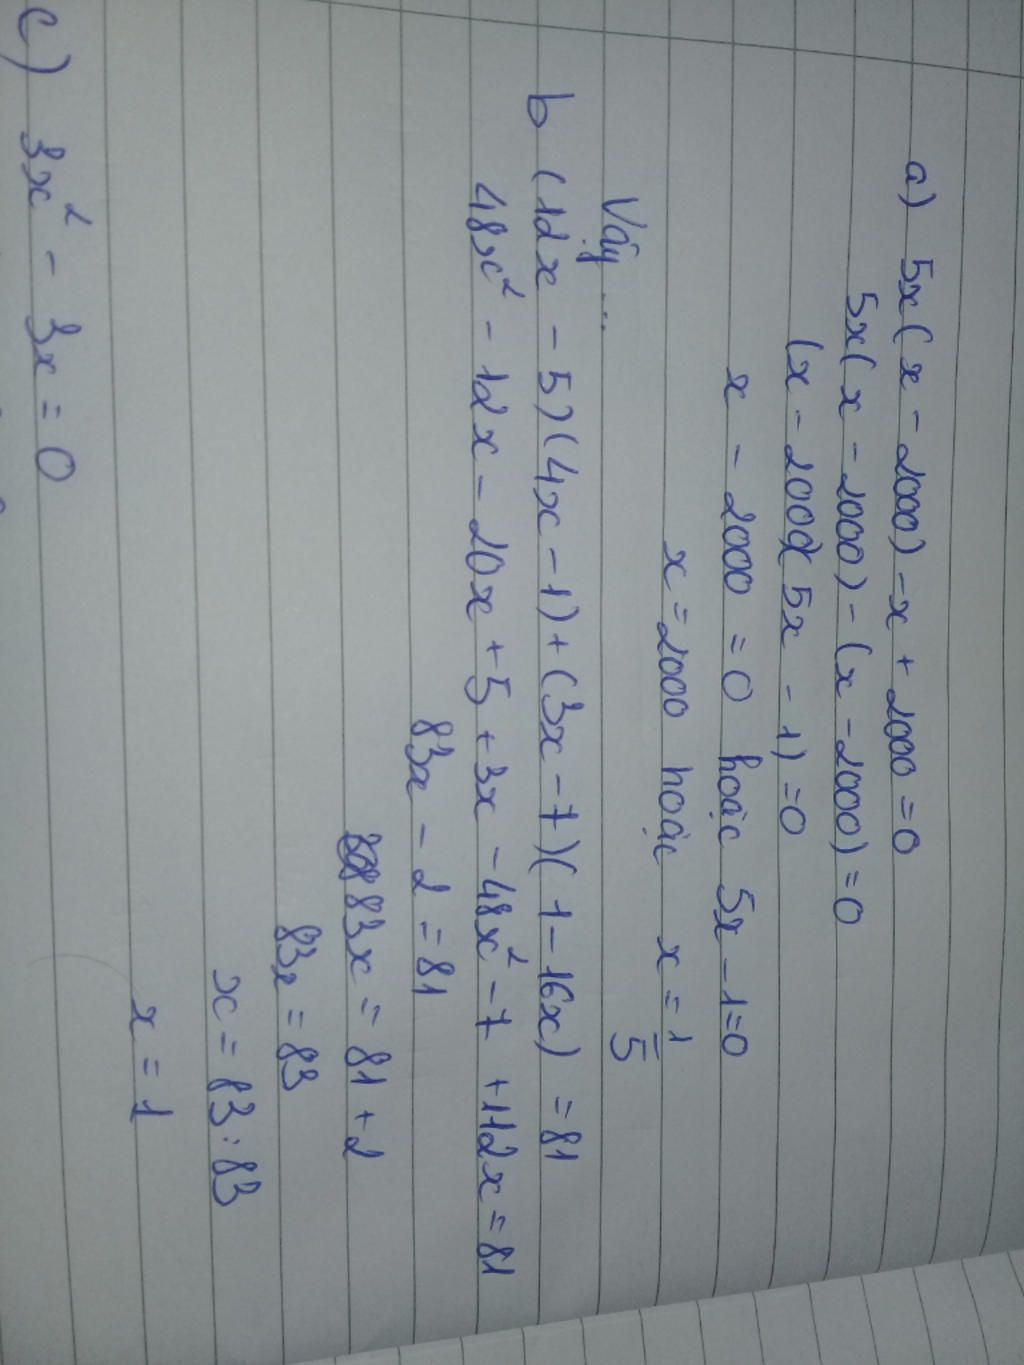 a) 5x(x - 2000) - x + 2000 = 0
5x(x - 2000) - (x - 2000) = 0
(x - 2000)(5x - 1) = 0
x - 2000 = 0 hoặc 5x - 1 = 0
x = 2000 hoặc x = 1/5
Vậy ...
b (12x - 5)(4x - 1) + (3x - 7)(1 - 16x) = 81
48x² - 12x - 20x + 5 + 3x - 48x² - 7 + 112x = 81
83x - 2 = 81
83x = 81 + 2
83x = 83
x = 83 : 83
x = 1
c) 3x² - 3x = 0